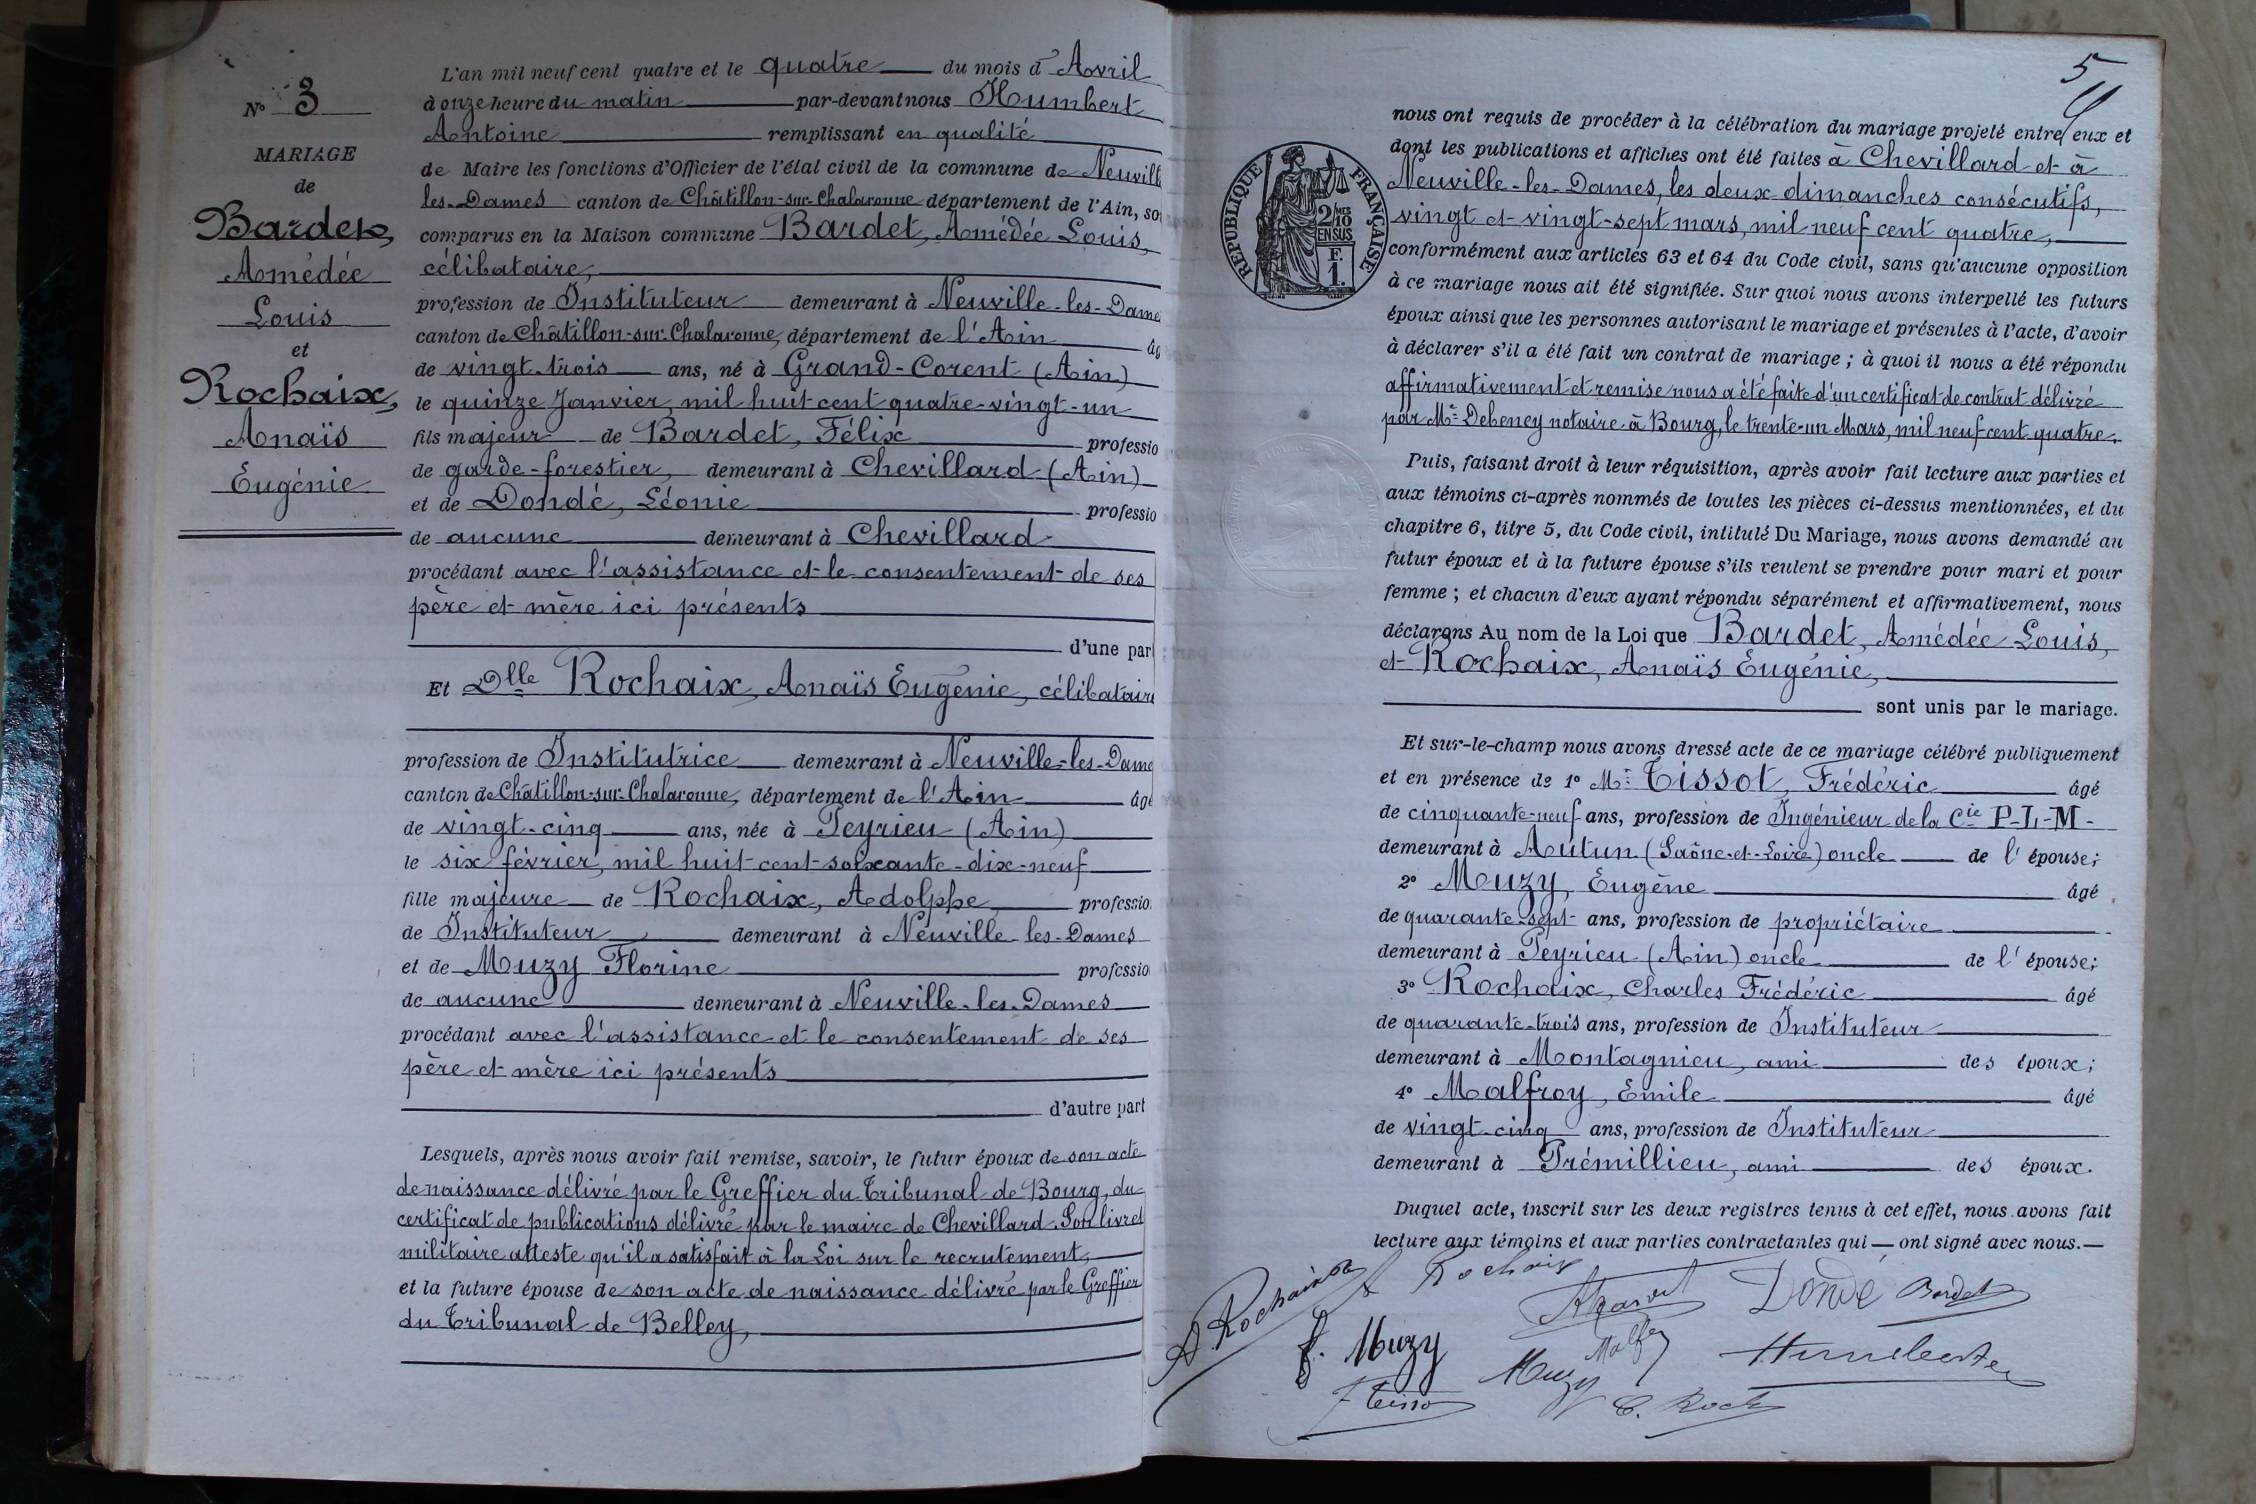 N° 3
MARIAGE
de
Bardet,
Amédée
Louis
et
Rochaix,
Anaïs
Eugénie
L'an mil neuf cent quatre et le quatre du mois d'Avril
à onze heure du matin par-devant nous Humbert
Antoine remplissant en qualité
de Maire les fonctions d'Officier de l'état civil de la commune de Neuvill
les-Dames canton de Châtillon-sur-Chalaronne département de l'Ain, so
comparus en la Maison commune Bardet, Amédée Louis,
célibataire,
profession de Instituteur demeurant à Neuville-les-Dame
canton de Châtillon-sur-Chalaronne, département de l'Ain âg
de vingt-trois ans, né à Grand-Corent (Ain)
le quinze Janvier, mil huit cent quatre-vingt-un
fils majeur de Bardet, Félix professio
de garde-forestier, demeurant à Chevillard (Ain)
et de Dondé, Léonie professio
de aucune demeurant à Chevillard
procédant avec l'assistance et le consentement de ses
père et mère ici présents
d'une par
Et Dlle Rochaix, Anaïs Eugénie, célibataire
profession de Institutrice demeurant à Neuville-les-Dame
canton de Châtillon-sur-Chalaronne, département de l'Ain âgé
de vingt-cinq ans, née à Peyrieu (Ain)
le six février, mil huit cent soixante-dix-neuf
fille majeure de Rochaix, Adolphe, professio
de Instituteur demeurant à Neuville-les-Dames
et de Muzy Florine professio
de aucune demeurant à Neuville-les-Dames
procédant avec l'assistance et le consentement de ses
père et mère ici présents
d'autre part
Lesquels, après nous avoir fait remise, savoir, le futur époux de son acte
de naissance délivré par le Greffier du Tribunal de Bourg, du
certificat de publications délivré par le maire de Chevillard. Son livret
militaire atteste qu'il a satisfait à la Loi sur le recrutement,
et la future épouse de son acte de naissance délivré par le Greffier
du Tribunal de Belley,
5
RÉPUBLIQUE FRANÇAISE
2/MES
10
EN SUS
F.
1.
nous ont requis de procéder à la célébration du mariage projeté entre eux et
dont les publications et affiches ont été faites à Chevillard et à
Neuville-les-Dames, les deux dimanches consécutifs,
vingt et vingt-sept mars, mil neuf cent quatre,
conformément aux articles 63 et 64 du Code civil, sans qu'aucune opposition
à ce mariage nous ait été signifiée. Sur quoi nous avons interpellé les futurs
époux ainsi que les personnes autorisant le mariage et présentes à l'acte, d'avoir
à déclarer s'il a été fait un contrat de mariage ; à quoi il nous a été répondu
affirmativement et remise nous a été faite d'un certificat de contrat délivré
par Me Debeney notaire à Bourg, le trente-un Mars, mil neuf cent quatre.
Puis, faisant droit à leur réquisition, après avoir fait lecture aux parties et
aux témoins ci-après nommés de toutes les pièces ci-dessus mentionnées, et du
chapitre 6, titre 5, du Code civil, intitulé Du Mariage, nous avons demandé au
futur époux et à la future épouse s'ils veulent se prendre pour mari et pour
femme ; et chacun d'eux ayant répondu séparément et affirmativement, nous
déclarons Au nom de la Loi que Bardet, Amédée Louis,
et Rochaix, Anaïs Eugénie,
sont unis par le mariage.
Et sur-le-champ nous avons dressé acte de ce mariage célébré publiquement
et en présence de 1° Mr Tissot, Frédéric âgé
de cinquante-neuf ans, profession de Ingénieur de la Cie P-L-M-
demeurant à Autun (Saône-et-Loire) oncle de l'épouse;
2° Muzy, Eugène âgé
de quarante-sept ans, profession de propriétaire
demeurant à Peyrieu (Ain) oncle de l'épouse;
3° Rochaix, Charles Frédéric âgé
de quarante-trois ans, profession de Instituteur
demeurant à Montagnieu, ami des époux;
4° Malfroy, Emile âgé
de vingt-cinq ans, profession de Instituteur
demeurant à Prémillieu, ami des époux.
Duquel acte, inscrit sur les deux registres tenus à cet effet, nous avons fait
lecture aux témoins et aux parties contractantes qui — ont signé avec nous.—
A. Rochaix A Rochaix
Dondé Bardet
f. Muzy
Muzy